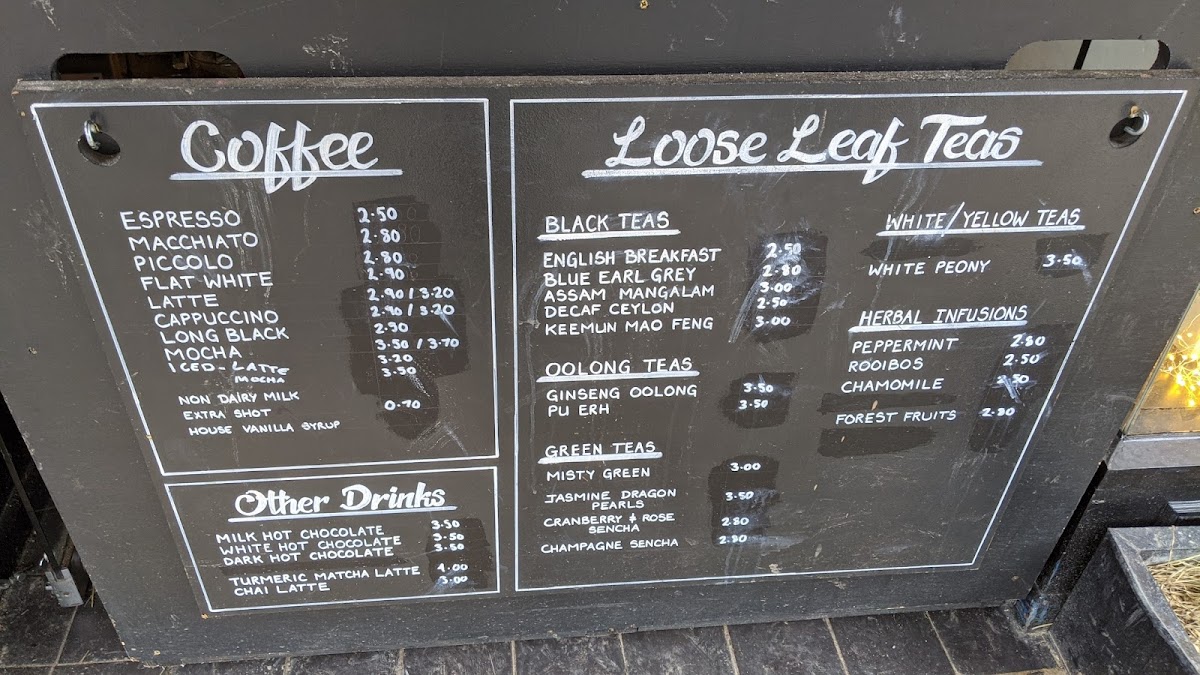 Coffee
ESPRESSO 2.50
MACCHIATO 2.80
PICCOLO 2.80
FLAT WHITE 2.90
LATTE 2.90 / 3.20
CAPPUCCINO 2.90 / 3.20
LONG BLACK 2.90
MOCHA 3.50 / 3.70
ICED - LATTE 3.20
MOCHA 3.50
NON DAIRY MILK
EXTRA SHOT 0.70
HOUSE VANILLA SYRUP
Other Drinks
MILK HOT CHOCOLATE 3.50
WHITE HOT CHOCOLATE 3.50
DARK HOT CHOCOLATE 3.50
TURMERIC MATCHA LATTE 4.00
CHAI LATTE 3.00
Loose Leaf Teas
BLACK TEAS
ENGLISH BREAKFAST 2.50
BLUE EARL GREY 2.80
ASSAM MANGALAM 3.00
DECAF CEYLON 2.50
KEEMUN MAO FENG 3.00
OOLONG TEAS
GINSENG OOLONG 3.50
PU ERH 3.50
GREEN TEAS
MISTY GREEN 3.00
JASMINE DRAGON 3.50
PEARLS
CRANBERRY & ROSE 2.80
SENCHA
CHAMPAGNE SENCHA 2.80
WHITE/YELLOW TEAS
WHITE PEONY 3.50
HERBAL INFUSIONS
PEPPERMINT 2.80
ROOIBOS 2.50
CHAMOMILE
FOREST FRUITS 2.80